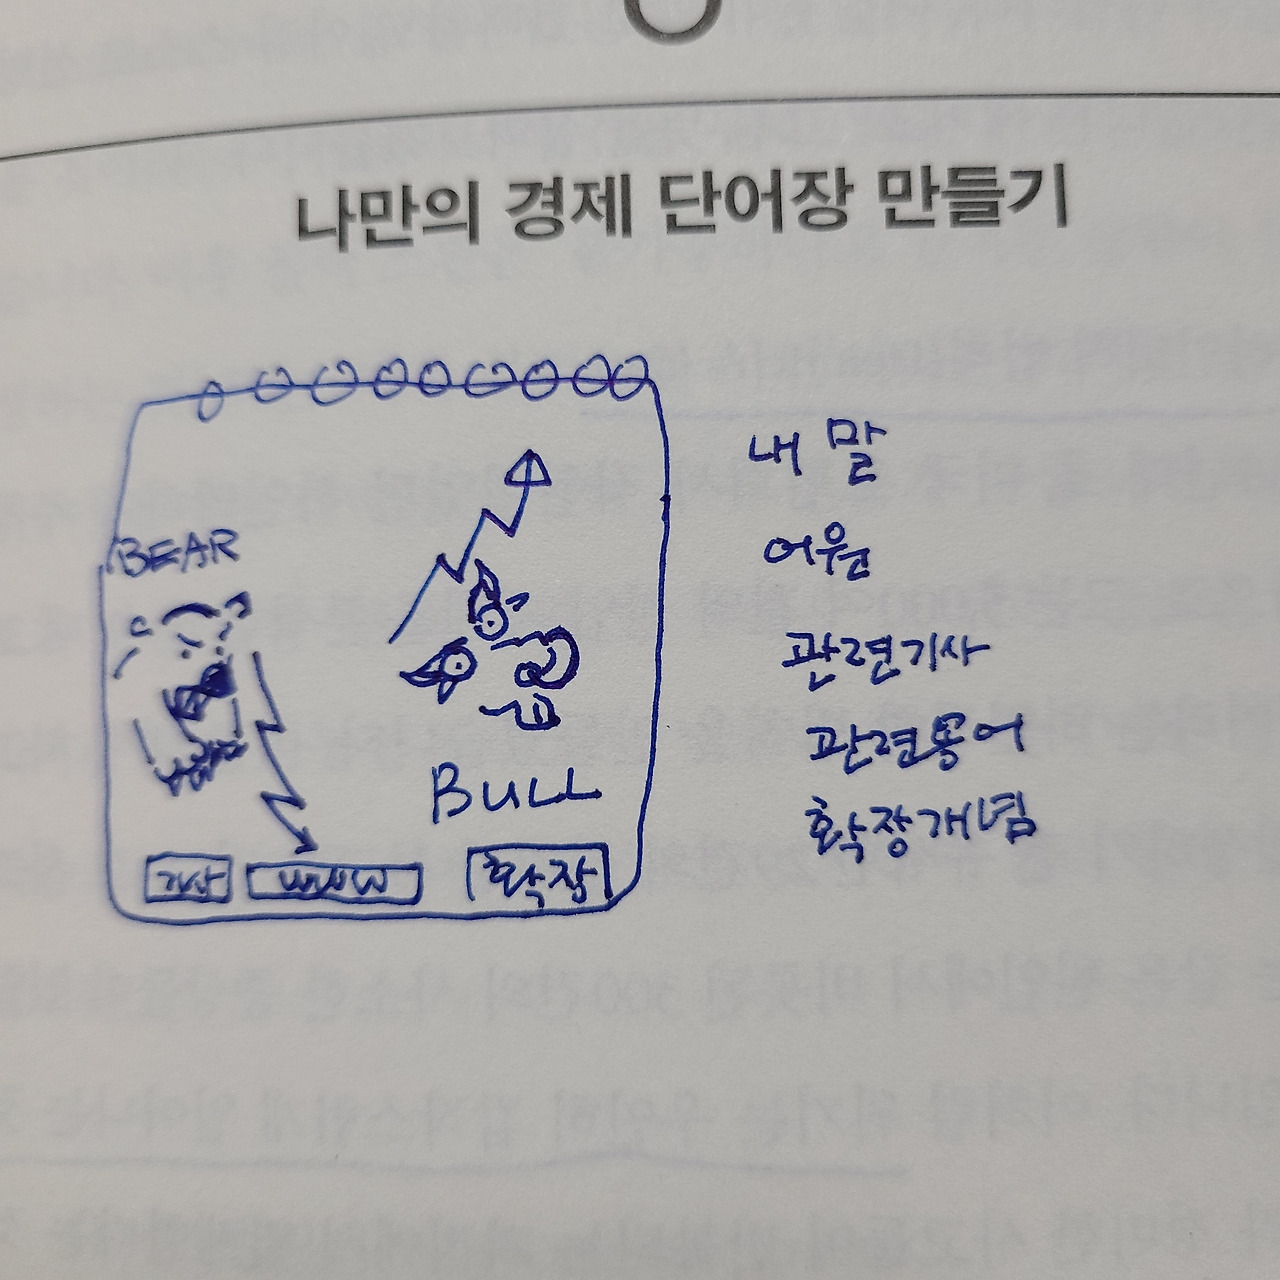 나만의 경제 단어장 만들기
BEAR
BULL
기사
확장
내 말
어원
관련기사
관련용어
확장개념